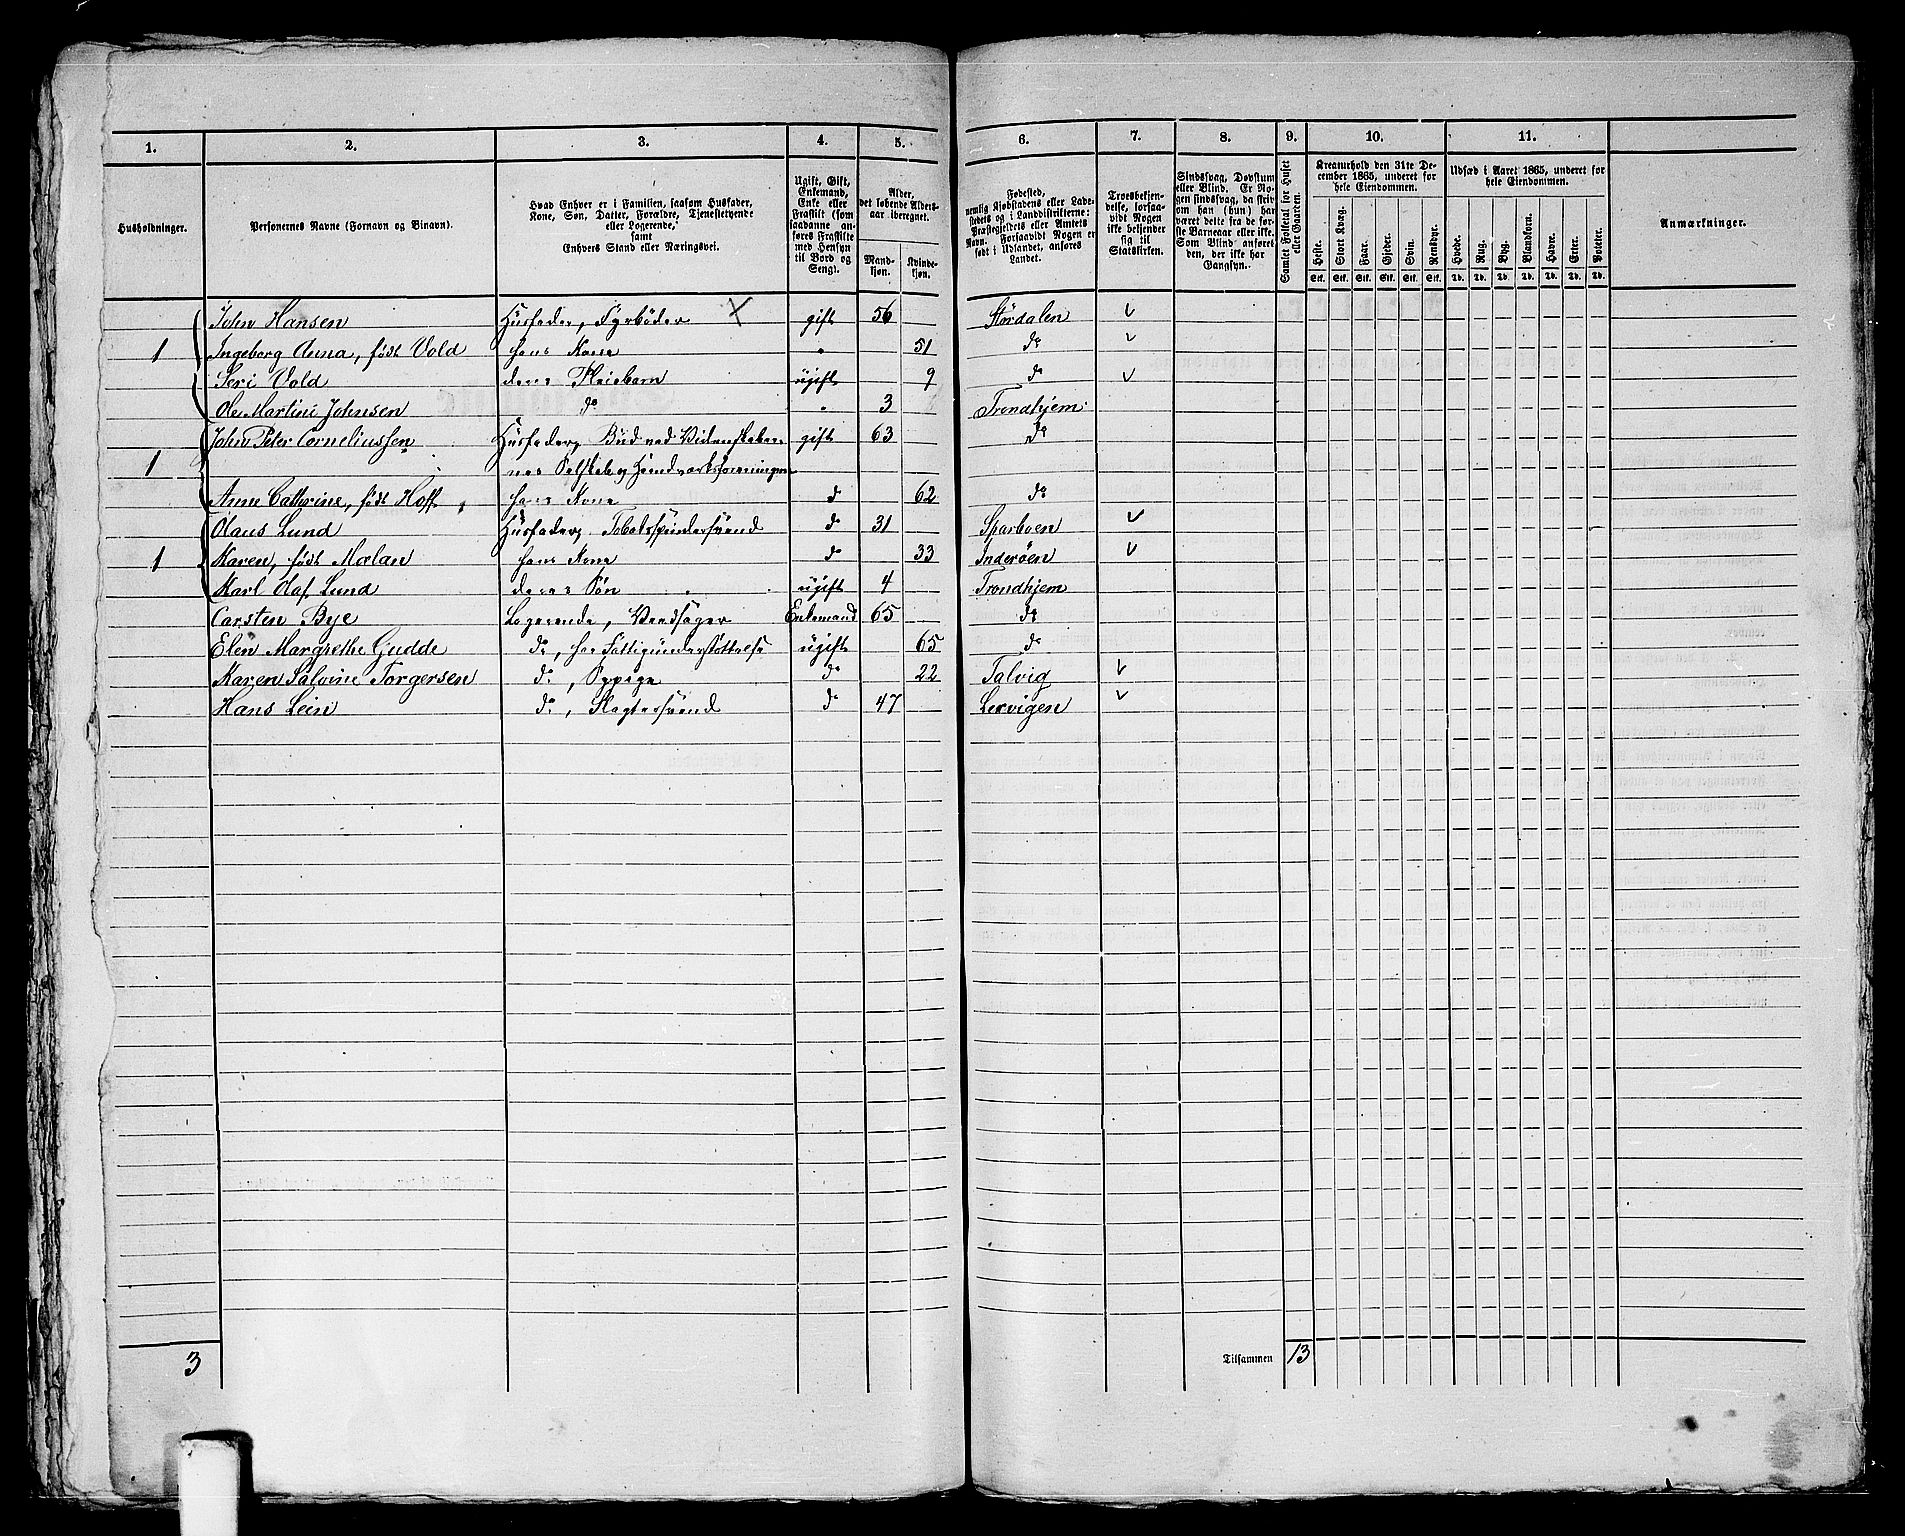 1. 2. 3. 4. 5. 6. 7. 8. 9. 10. 11.
Husholdninger.
Personernes Navne (Fornavn og Binavn).
Hvad Enhver er i Familien, saasom Husfader,
Kone, Søn, Datter, Forældre, Tjenestetyende
eller Logerende,
samt
Enhvers Stand eller Næringsvei.
Ugift, Gift,
Enkemand,
Enke eller
Fraskilt (som
saadanne an-
føres Fraskilte
med Hensyn
til Bord og
Seng).
Alder,
det løbende Alders-
aar iberegnet.
Mand-
kjøn.
Kvinde-
kjøn.
Fødested,
nemlig Kjøbstadens eller Lade-
stedets og i Landdistrikterne:
Præstegjeldets eller Amtets
Navn. Forsaavidt Nogen er
født i Udlandet, anføres
Landet.
Troesbekjen-
delse, forsaa-
vidt Nogen
ikke bekjender
sig til
Statskirken.
Sindssvag, Døvstum
eller Blind. Er No-
gen sindssvag, da skriv
om han (hun) har
været dette fra de før-
ste Barneaar eller ikke.
Som Blind anføres
den, der ikke har
Gangsyn.
Samlet Folketal for Huset
eller Gaarden.
Kreaturhold den 31te De-
cember 1865, underet for
hele Eiendommen.
Heste. Stort Kvæg. Faar. Gjeder. Svin. Rensdyr.
Stk. Stk. Stk. Stk. Stk. Stk.
Udsæd i Aaret 1865, underet for
hele Eiendommen.
Hvede. Rug. Byg. Blandkorn. Havre. Erter. Poteter.
Td. Td. Td. Td. Td. Td. Td.
Anmærkninger.
John Hansen Husfader, Fyrbøder gift 56 Størdalen
1 Ingeborg Anna, født Vold hans Kone " 51 do
Seri Vold deres Pleiebarn ugift 9 do
Ole Martini Johnsen do " 3 Trondhjem
John Peter Corneliussen Husfader, Bud ved Videnskaber- gift 63 do
1 nes Selskab og Haandværksforeningen
Anne Cathrine, født Hoff hans Kone do 62 do
Olaus Lund Husfader, Tobaksspindersvend do 31 Sparboen
1 Karen, født Mælan hans Kone do 33 Inderøen
Karl Olaf Lund deres Søn ugift 4 Trondhjem
Carsten Bye Logerende, Vedsager Enkemand 65 do
Elen Margrethe Gudde do, har Fattigunderstøttelse ugift 65 do
Karen Salvine Torgersen do, Sypige do 22 Talvig
Hans Lein do, Slagtersvend do 47 Lexvigen
3
Tilsammen 13